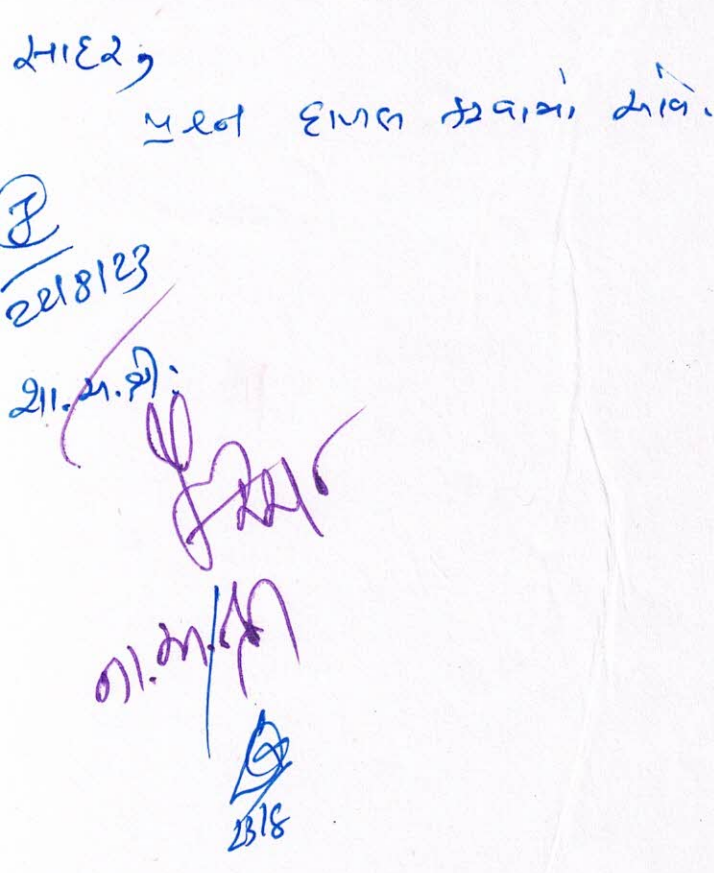 સાદર,
પ્રશ્ન દાખલ કરવામાં આવે.
22/8/23
શા.અ.શ્રી:
ના.અ./
23/8